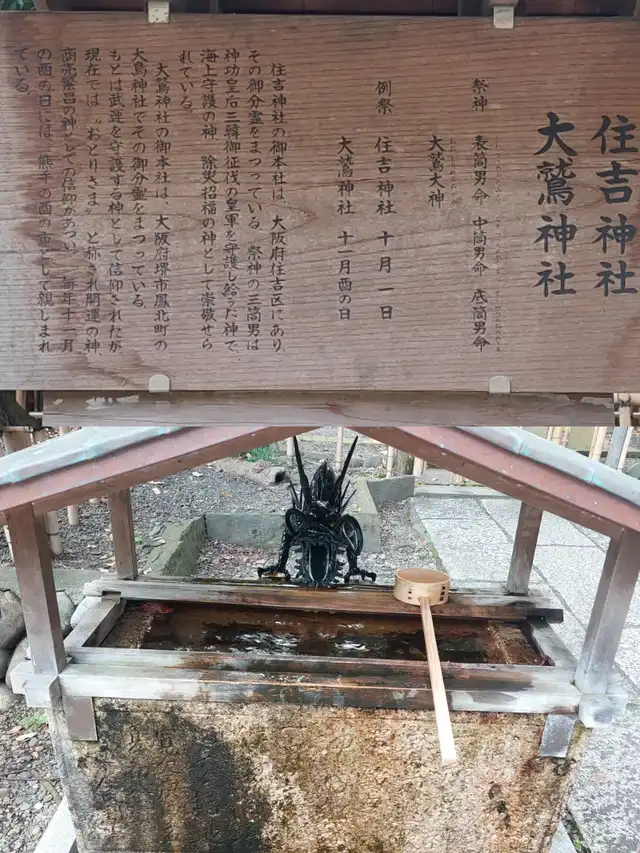 住吉神社
大鷲神社
祭神 表筒男命 中筒男命 底筒男命
大鷲大神
例祭 住吉神社 十月一日
大鷲神社 十一月酉の日
住吉神社の御本社は、大阪府住吉区にあり、
その御分霊をまつっている。祭神の三筒男は
神功皇后三韓御征伐の皇軍を守護し給うた神で、
海上守護の神、除災招福の神として崇敬せら
れている。
大鷲神社の御本社は、大阪府堺市鳳北町の
大鳥神社でその御分霊をまつっている。
もとは武運を守護する神として信仰されたが
現在では〝おとりさま〟と称され開運の神、
商売繁昌の神としての信仰があつい。毎年十一月
の酉の日には、熊手の酉の市として親しまれ
ている。